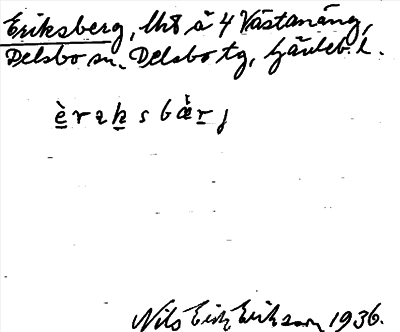 Eriksberg, lht å 4 Västanäng,
Delsbo sn. Delsbo tg, Gävleb. l.
èrıksbä̀rj
Nils Erik Eriksson 1936.